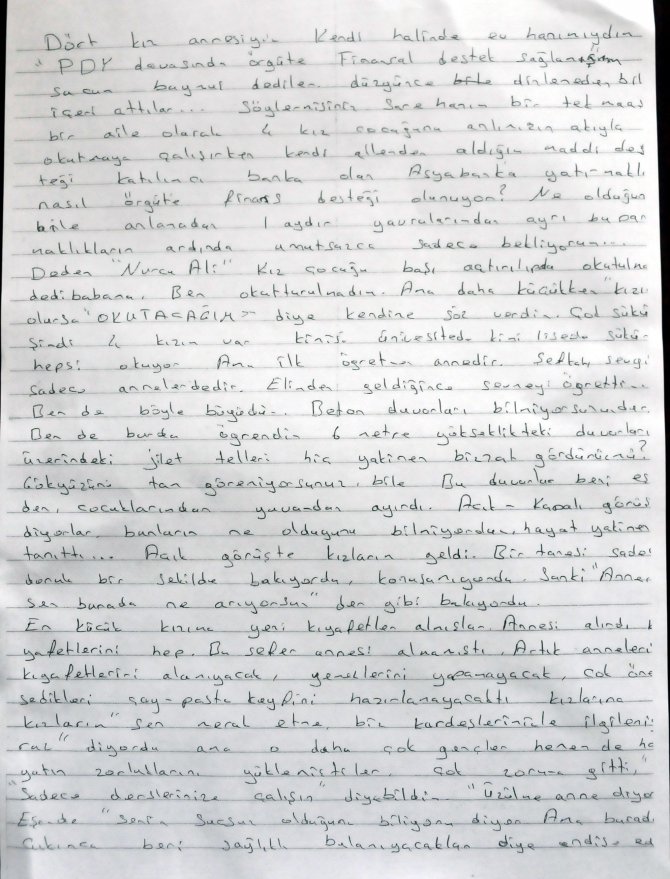 Dört kız annesiyim. Kendi halinde ev hanımıydım
"PDY davasında örgüte Finansal destek sağlamışım
sucun baynul dediler. düzgünce dinlemeden bil
içeri attılar... Söylermisiniz Sare hanım bir tek maaş
bir aile olarak 4 kız çocuğunu anlımızın akıyla
okutmaya çalışırken kendi allemden aldığım maddi des
teği katılımcı banka olan Asyabanka yatırmaklı
nasıl örgüte finans desteği olunuyor? Ne olduğun
bile anlamadan 1 aydır yavrularımdan ayrı bu par
maklıkların ardında umutsuzca sadece bekliyorum...
Dedem "Nurcu Ali" Kız çocuğu başı açtırılıpda okutulma
dedi babama. Ben okutturulmadım. Ama daha küçükken "kızı
olursa "OKUTACAĞIM" diye kendime söz verdim. Çok şükü
Şimdi 4 kızım var kimisi üniversitede kimi lisede şükü
hepsi okuyor. Ama ilk öğretmen annedir. Sefkat, sevgi
sadece annelerdedir. Elimden geldiğince sevmeyi öğrettim.
Ben de böyle büyüdüm. Beton duvarları bilmiyorsunuzdur.
Ben de burda öğrendim 6 metre yükseklikteki duvarları
üzerindeki jilet telleri hiç yakinen bizzat gördünüzmü?
Gökyüzünü tam göremiyorsunuz bile Bu duvarlar beni eş
den, çocuklarımdan yuvamdan ayırdı. Açık - Kapalı görüş
diyorlar, bunların ne olduğunu bilmiyordum, hayat yakinen
tanıttı... Açık görüşte kızlarım geldi. Bir tanesi sade
donuk bir şekilde bakıyordu, konuşamıyordu. Sanki "Anne
sen burada ne arıyorsun" der gibi bakıyordu.
En küçük kızıma yeni kıyafetler almışlar. Annesi alırdı k
yafetlerini hep. Bu sefer annesi almamıştı. Artık anneleri
kıyafetlerini alamıyacak, yemeklerini yapamayacak, çok öne
sedikleri çay-pasta keyfini hazırlamayacaktı kızlarına
kızlarım "sen merak etme, biz kardeşlerimizle ilgileni
rız" diyordu ama o daha çok gençler hemen de ha
yatın zorluklarını yüklemiştiler, çok zoruma gitti,"
"Sadece derslerinize çalışın" diyebildim. "Üzülme anne diyor
Eşimde "senin suçsuz olduğunu biliyoru diyor Ama burad
Çıkınca beni sağlıklı bulamıyacaklar diye endişe ed